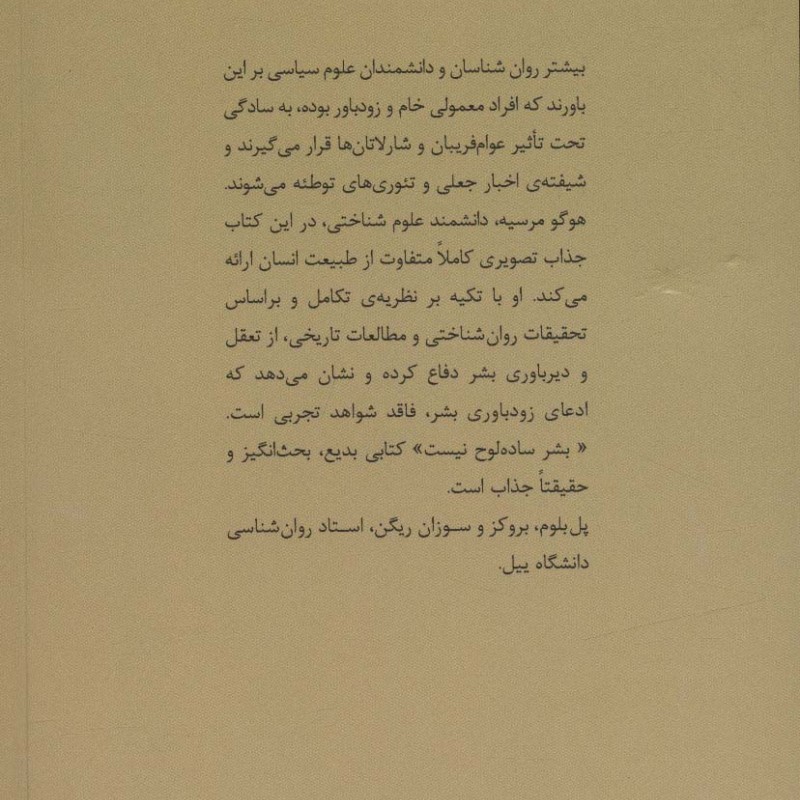 بیشتر روان شناسان و دانشمندان علوم سیاسی بر این
باورند که افراد معمولی خام و زودباور بوده، به سادگی
تحت تأثیر عوام‌فریبان و شارلاتان‌ها قرار می‌گیرند و
شیفته‌ی اخبار جعلی و تئوری‌های توطئه می‌شوند.
هوگو مرسیه، دانشمند علوم شناختی، در این کتاب
جذاب تصویری کاملاً متفاوت از طبیعت انسان ارائه
می‌کند. او با تکیه بر نظریه‌ی تکامل و براساس
تحقیقات روان‌شناختی و مطالعات تاریخی، از تعقل
و دیرباوری بشر دفاع کرده و نشان می‌دهد که
ادعای زودباوری بشر، فاقد شواهد تجربی است.
« بشر ساده‌لوح نیست» کتابی بدیع، بحث‌انگیز و
حقیقتاً جذاب است.
پل بلوم، بروکز و سوزان ریگن، استاد روان‌شناسی
دانشگاه ییل.